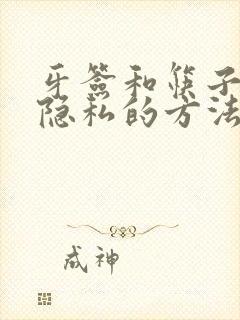 牙签和筷子
隐私的方法
成神